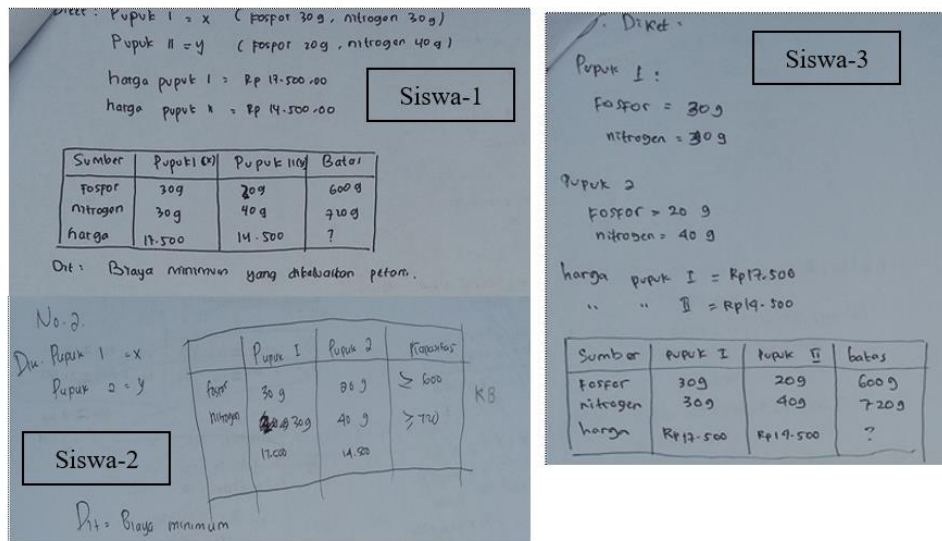 Diket : Pupuk I = x ( Fosfor 30g, nitrogen 30g)
Pupuk II = y ( Fospor 20g, nitrogen 40g)
harga pupuk I = Rp 17.500,00
harga pupuk = Rp 14.500,00
Siswa-1
Sumber Pupuk I (x) Pupuk II (y) Batas
Fospor 30g 20g 600g
nitrogen 30g 40g 720g
harga 17.500 14.500 ?
Dit : Biaya minimum yang dikeluarkan petani.
No. 2.
Dik. Pupuk 1 = x
Pupuk 2 = y
Pupuk I Pupuk 2 Kapasitas
fosfor 30 g g ≥ 600
nitrogen 30g 40 g ≥ 720
14.500
KB
Siswa-2
Dit = Biaya minimum
Diket :
Siswa-3
Pupuk I :
Fosfor = 30g
nitrogen = 30g
Pupuk 2
Fosfor = 20 g
nitrogen = 40 g
harga pupuk I = Rp17.500
" " II = Rp14.500
Sumber pupuk I Pupuk II batas
Fosfor 30g 20g 600g
nitrogen 30g 40g 720g
harga Rp17.500 Rp14.500 ?